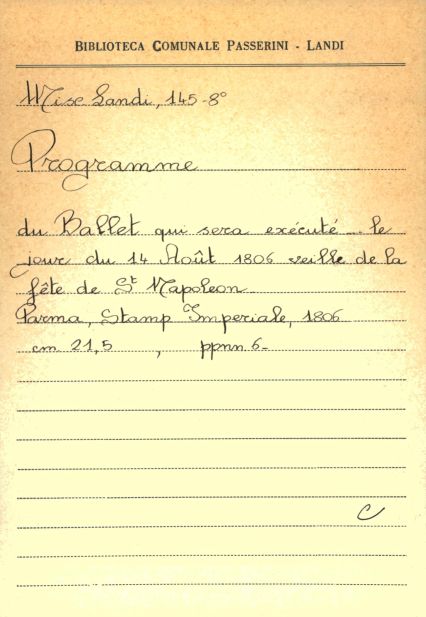 BIBLIOTECA COMUNALE PASSERINI - LANDI
Misc Landi, 145-8°
Programme
du Ballet qui sera exécuté ... le
jour du 14 Août 1806 veille de la
fête de St Napoleon
Parma, Stamp Imperiale, 1806
cm 21,5 , ppnn 6-
C